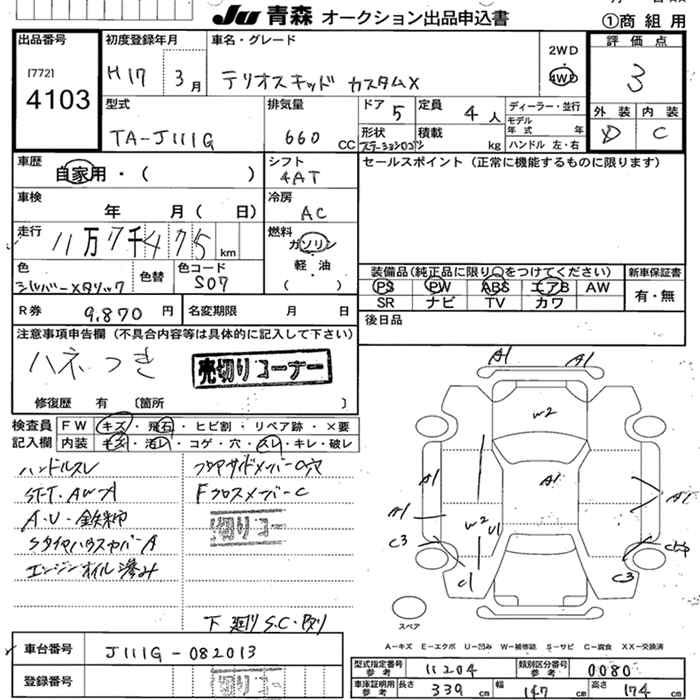 JU 青森 オークション出品申込書
①商組用
出品番号
[772]
4103
初度登録年月
H17 3月
車名・グレード
テリオスキッド カスタムX
2WD
4WD
評価点
3
型式
TA-J111G
排気量
660 CC
ドア 5
定員 4人
ディーラー・並行
モデル年式 年
ハンドル 左・右
形状
ステーションワゴン
積載 kg
外装 内装
D C
車歴
自家用・( )
シフト
4AT
セールスポイント(正常に機能するものに限ります)
車検
年 月( 日)
冷房
AC
走行
11万7千475 km
燃料
ガソリン
軽油
( )
色
シルバーメタリック
色替
色コード
S07
装備品(純正品に限り○をつけてください)
PS PW ABS エアB AW
SR ナビ TV カワ
新車保証書
有・無
R券 9,870 円
名変期限 月 日
後日品
注意事項申告欄(不具合内容等は具体的に記入して下さい)
ハネつき
売切りコーナー
修復歴 有 〔箇所 〕
検査員記入欄
FW キズ・飛石・ヒビ割・リペア跡・×要
内装 キズ・汚レ・コゲ・穴・スレ・キレ・破レ
ハンドルスレ
エンジンオイル滲み
FクロスメンバーC
売切りコー
A1 A1
W2
A1
A1
A1
A1
W2
U1
C3
C1
C3
スペア
A-キズ E-エクボ U-凹み W-補修跡 S-サビ C-腐食 XX-交換済
車台番号
J111G-082013
登録番号
売切りコー
型式指定番号 参考 11204
類別区分番号 参考 0080
車庫証明用 参考 長さ 339 cm 幅 147 cm 高さ 174 cm